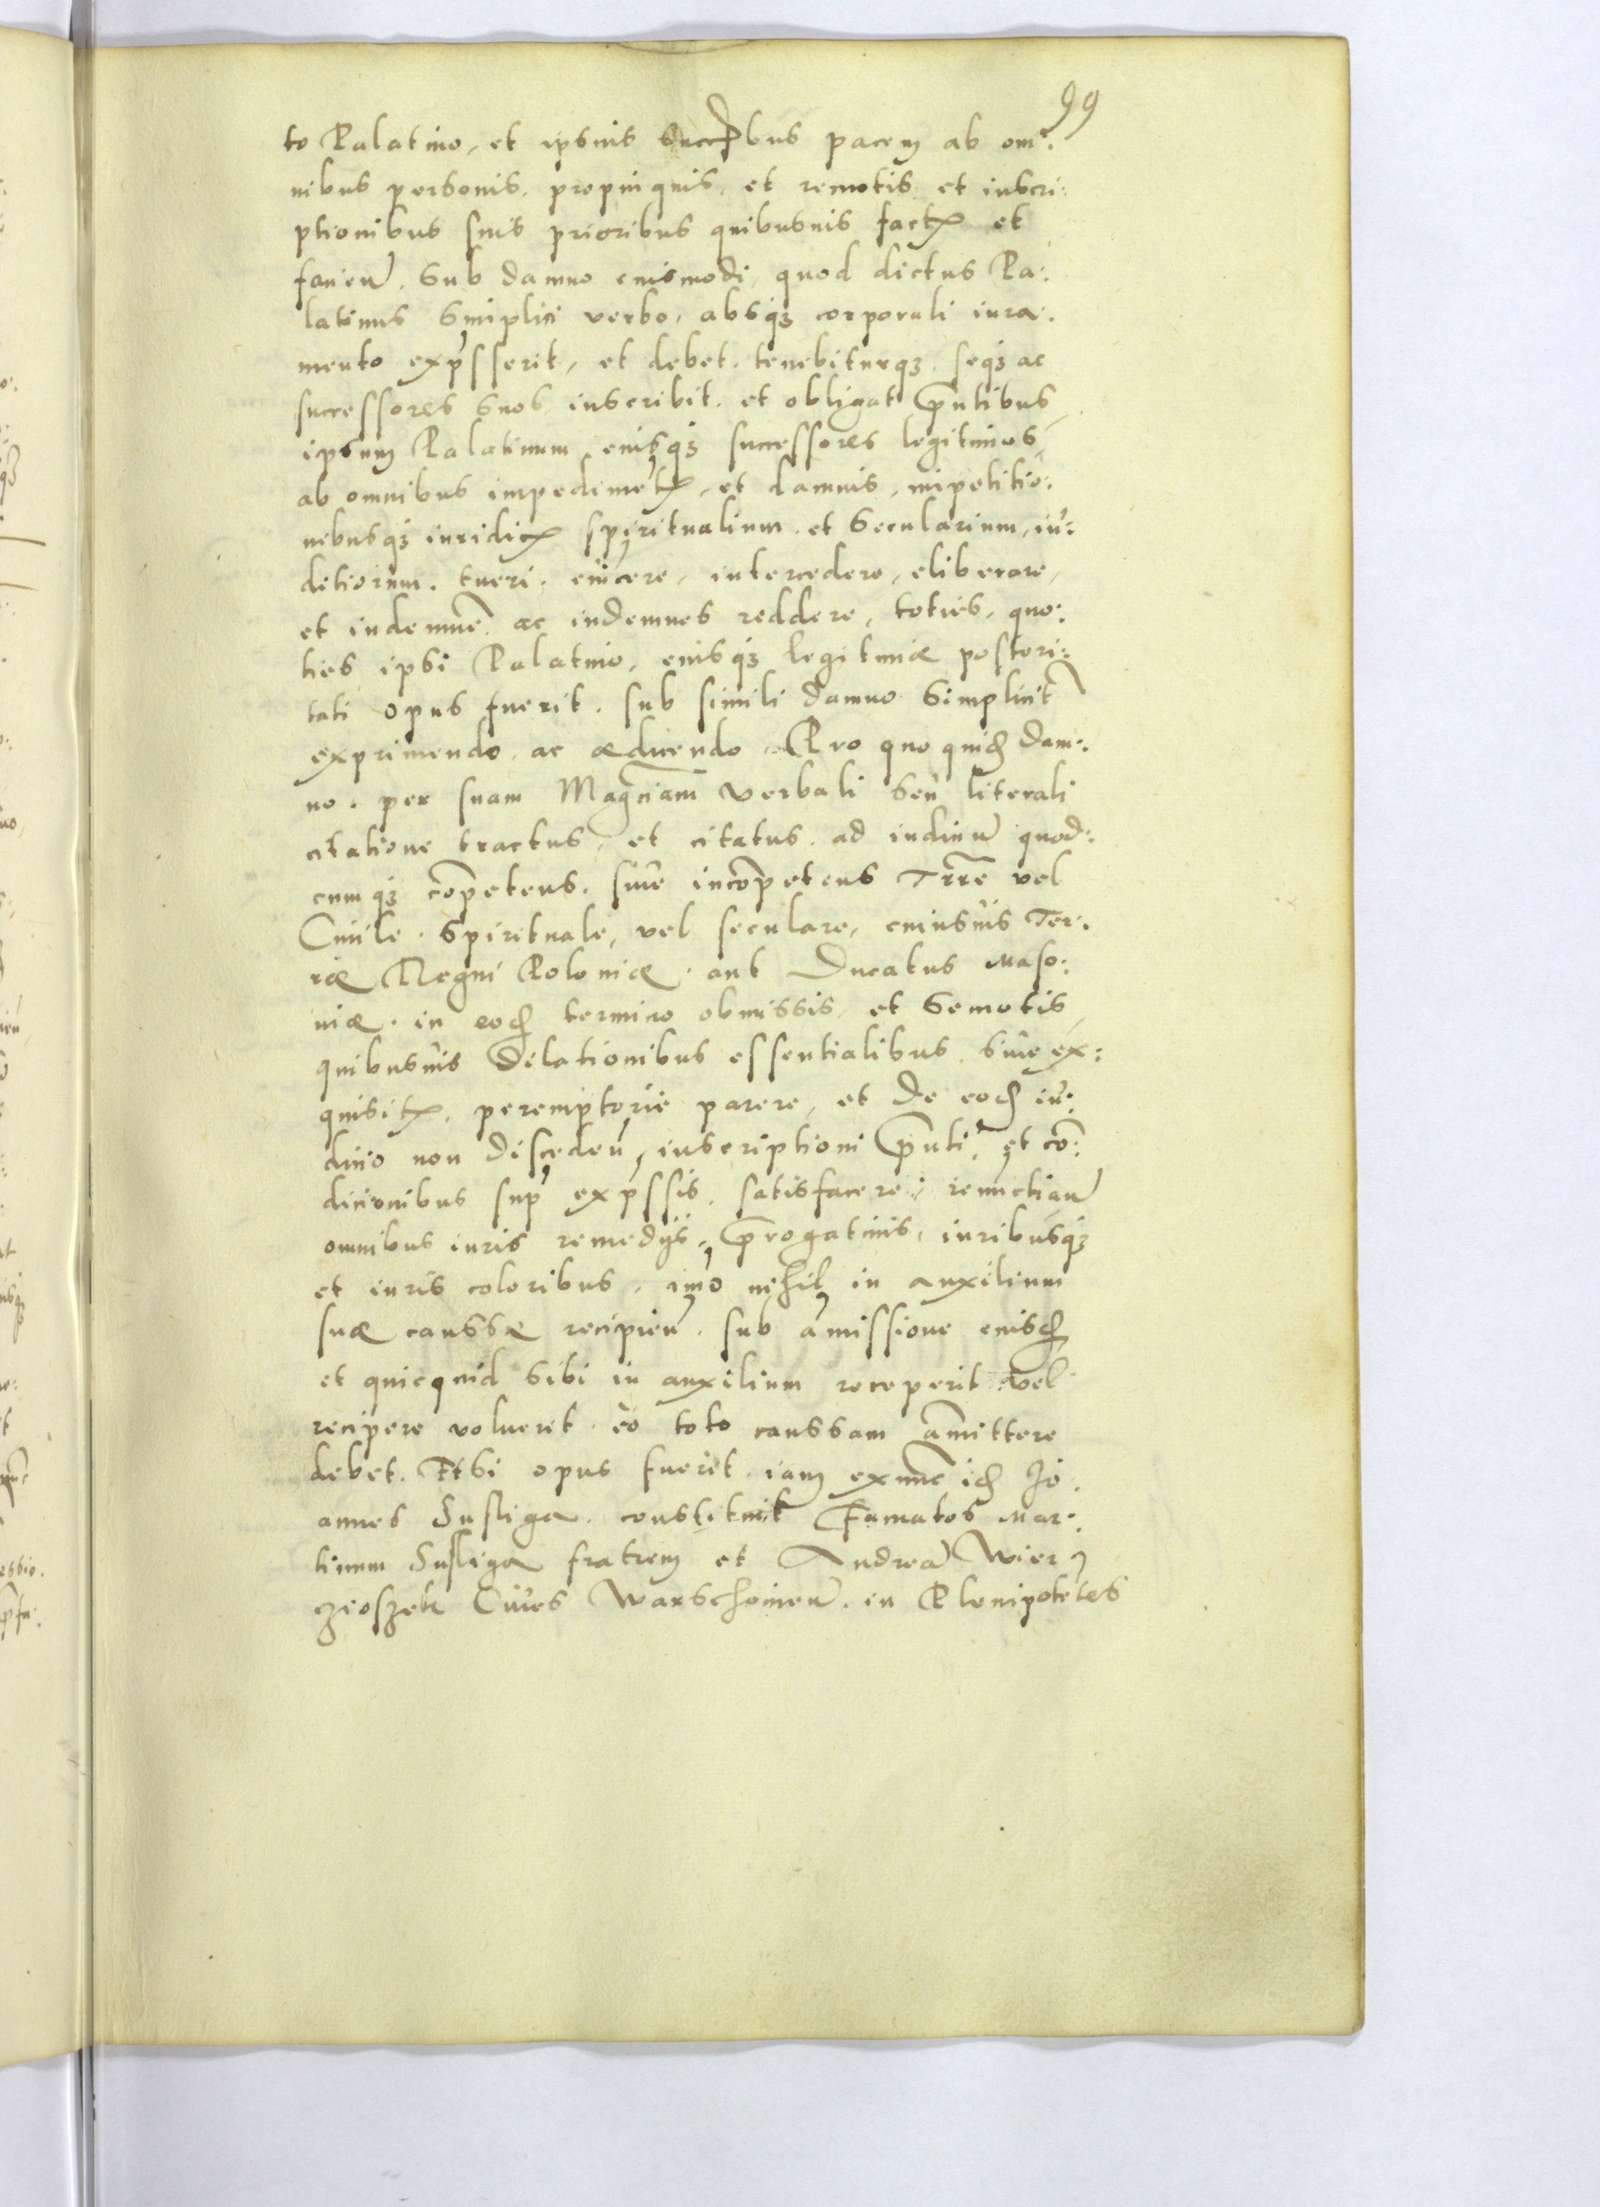 99
to Palatino, et ipsius succribus pacem ab om:
nibus personis, propinquis, et remotis et inscri:
ptionibus suis prioribus quibusuis factis et
faciend. Sub damno eiusmodi, quod dictus Pa:
latinus Simplici verbo, absq3 corporali iura:
mento expsserit, et debet, tenebiturq3, seq3 ac
successores suos inscribit, et obligat pntibus
ipsum Palatinum eiusq3 successores legitimos,
ab omnibus impedimetis, et damnis, impetitio:
nibusq3 iuridicis spiritualium et Secularium, iu:
ditiorum. tueri. euincere, intercedere, eliberare,
et indemne ac indemnes reddere, toties, quo:
ties ipsi Palatino, eiusq3 legitimæ posteri:
tati opus fuerit. sub simili damno Simplicit
exprimendo, ac ædicendo. Pro quo quid dam:
no. per suam Magciam verbali seu literali
citatione tractus, et citatus. ad iudiciu quod:
cumq3 copetens, siue incopetens Trre vel
Ciuile. Spirituale, vel seculare, cuiusuis Ter:
ræ Regni Poloniæ. aut Ducatus Maso:
uiæ. in eod termino obmissis, et Semotis,
quibusuis dilationibus essentialibus, siue ex:
quisitis, peremptorie parere, et de eod iu:
dicio non disceden, inscriptioni pnti, et co:
dicionibus sup expssis, satisfacere, renuctiand
omnibus iuris remedijs, prrogatiuis, iuribusq3
et iuris coloribus, imo nihil in auxilium
suæ caussæ recipien. sub amissione eiusd
et quicquid sibi in auxilium receperit vel
recipere voluerit eo toto caussam amittere
debet. Etsi opus fuerit, iam exnunc id Jo
annes Susliga. constituit Famatos Mar:
tinum Susliga fratrem et Andrea Wier
czioszek Ciues Warschouien. in Plenipotetes